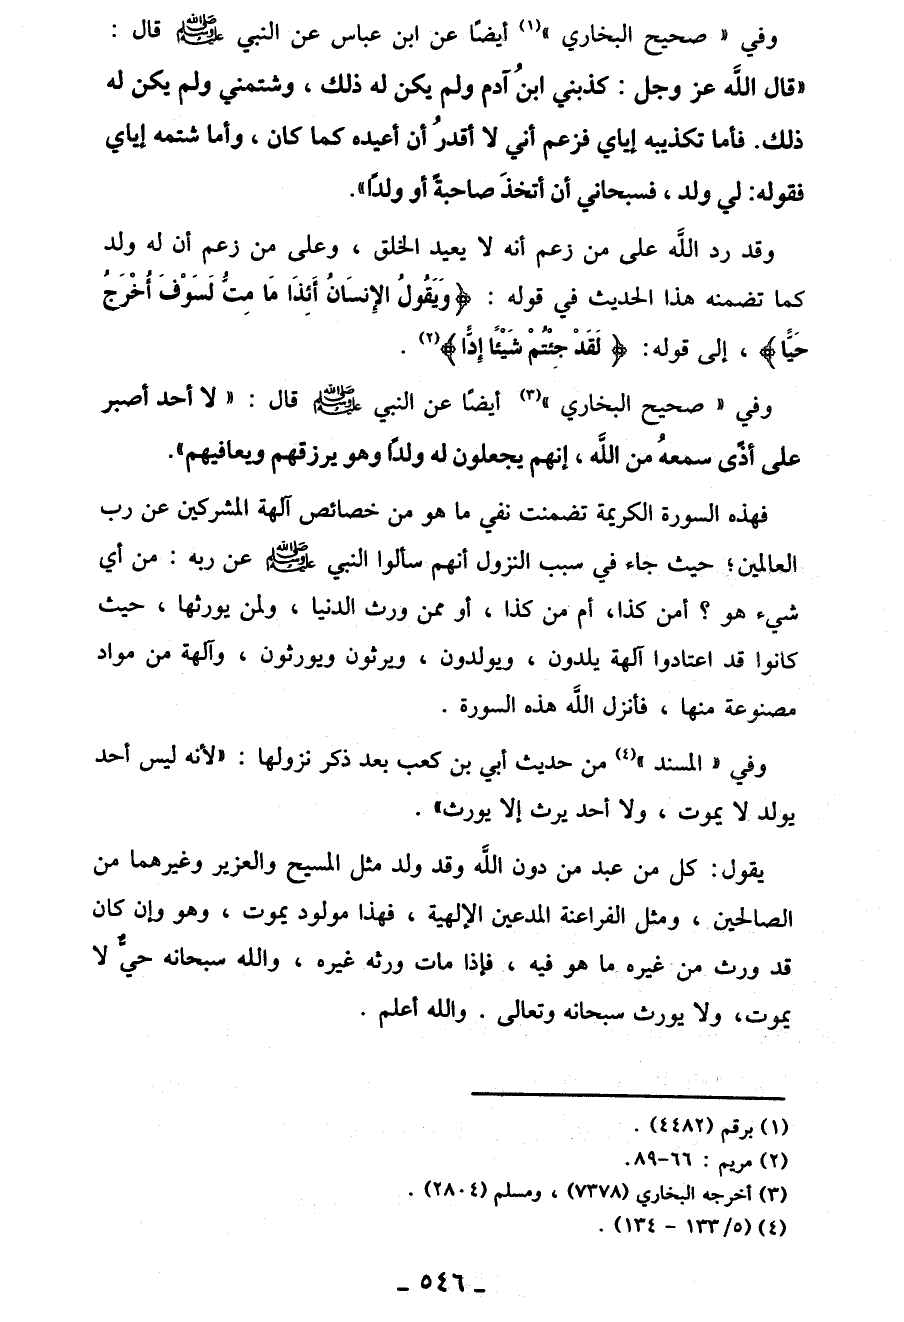 وفي « صحيح البخاري »(١) أيضًا عن ابن عباس عن النبي ﷺ قال :
«قال اللَّه عز وجل : كذبني ابنُ آدم ولم يكن له ذلك ، وشتمني ولم يكن له
ذلك. فأما تكذيبه إياي فزعم أني لا أقدرُ أن أعيده كما كان ، وأما شتمه إياي
فقوله: لي ولد ، فسبحاني أن أتخذَ صاحبةً أو ولدًا».
وقد رد اللَّه على من زعم أنه لا يعيد الخلق ، وعلى من زعم أن له ولد
كما تضمنه هذا الحديث في قوله : ﴿وَيَقُولُ الإِنسَانُ أَئِذَا مَا مِتُّ لَسَوْفَ أُخْرَجُ
حَيًّا﴾ ، إلى قوله: ﴿ لَقَدْ جِئْتُمْ شَيْئًا إِدًّا﴾(٢) .
وفي « صحيح البخاري »(٣) أيضًا عن النبي ﷺ قال : « لا أحد أصبر
على أذًى سمعهُ من اللَّه ، إنهم يجعلون له ولدًا وهو يرزقهم ويعافيهم».
فهذه السورة الكريمة تضمنت نفي ما هو من خصائص آلهة المشركين عن رب
العالمين؛ حيث جاء في سبب النزول أنهم سألوا النبي ﷺ عن ربه : من أي
شيء هو ؟ أمن كذا، أم من كذا ، أو ممن ورث الدنيا ، ولمن يورثها ، حيث
كانوا قد اعتادوا آلهة يلدون ، ويولدون ، ويرثون ويورثون ، وآلهة من مواد
مصنوعة منها ، فأنزل اللَّه هذه السورة .
وفي « المسند »(٤) من حديث أبي بن كعب بعد ذكر نزولها : «لأنه ليس أحد
يولد لا يموت ، ولا أحد يرث إلا يورث» .
يقول: كل من عبد من دون اللَّه وقد ولد مثل المسيح والعزير وغيرهما من
الصالحين ، ومثل الفراعنة المدعين الإلهية ، فهذا مولود يموت ، وهو وإن كان
قد ورث من غيره ما هو فيه ، فإذا مات ورثه غيره ، والله سبحانه حيٌّ لا
يموت، ولا يورث سبحانه وتعالى . والله أعلم .
(١) برقم (٤٤٨٢) .
(٢) مريم : ٦٦-٨٩.
(٣) أخرجه البخاري (٧٣٧٨) ، ومسلم (٢٨٠٤) .
(٤) (١٣٣/٥ – ١٣٤) .
- ٥٤٦ -